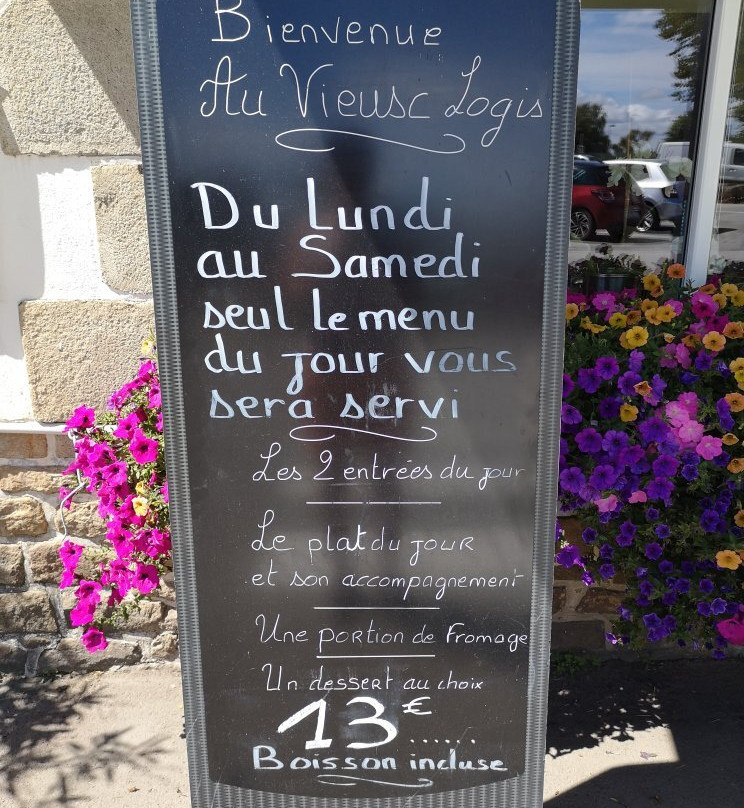 Bienvenue
Au Vieux Logis
Du Lundi
au Samedi
seul le menu
du jour vous
sera servi
Les 2 entrées du jour
Le plat du jour
et son accompagnement
Une portion de fromage
Un dessert au choix
13€......
Boisson incluse